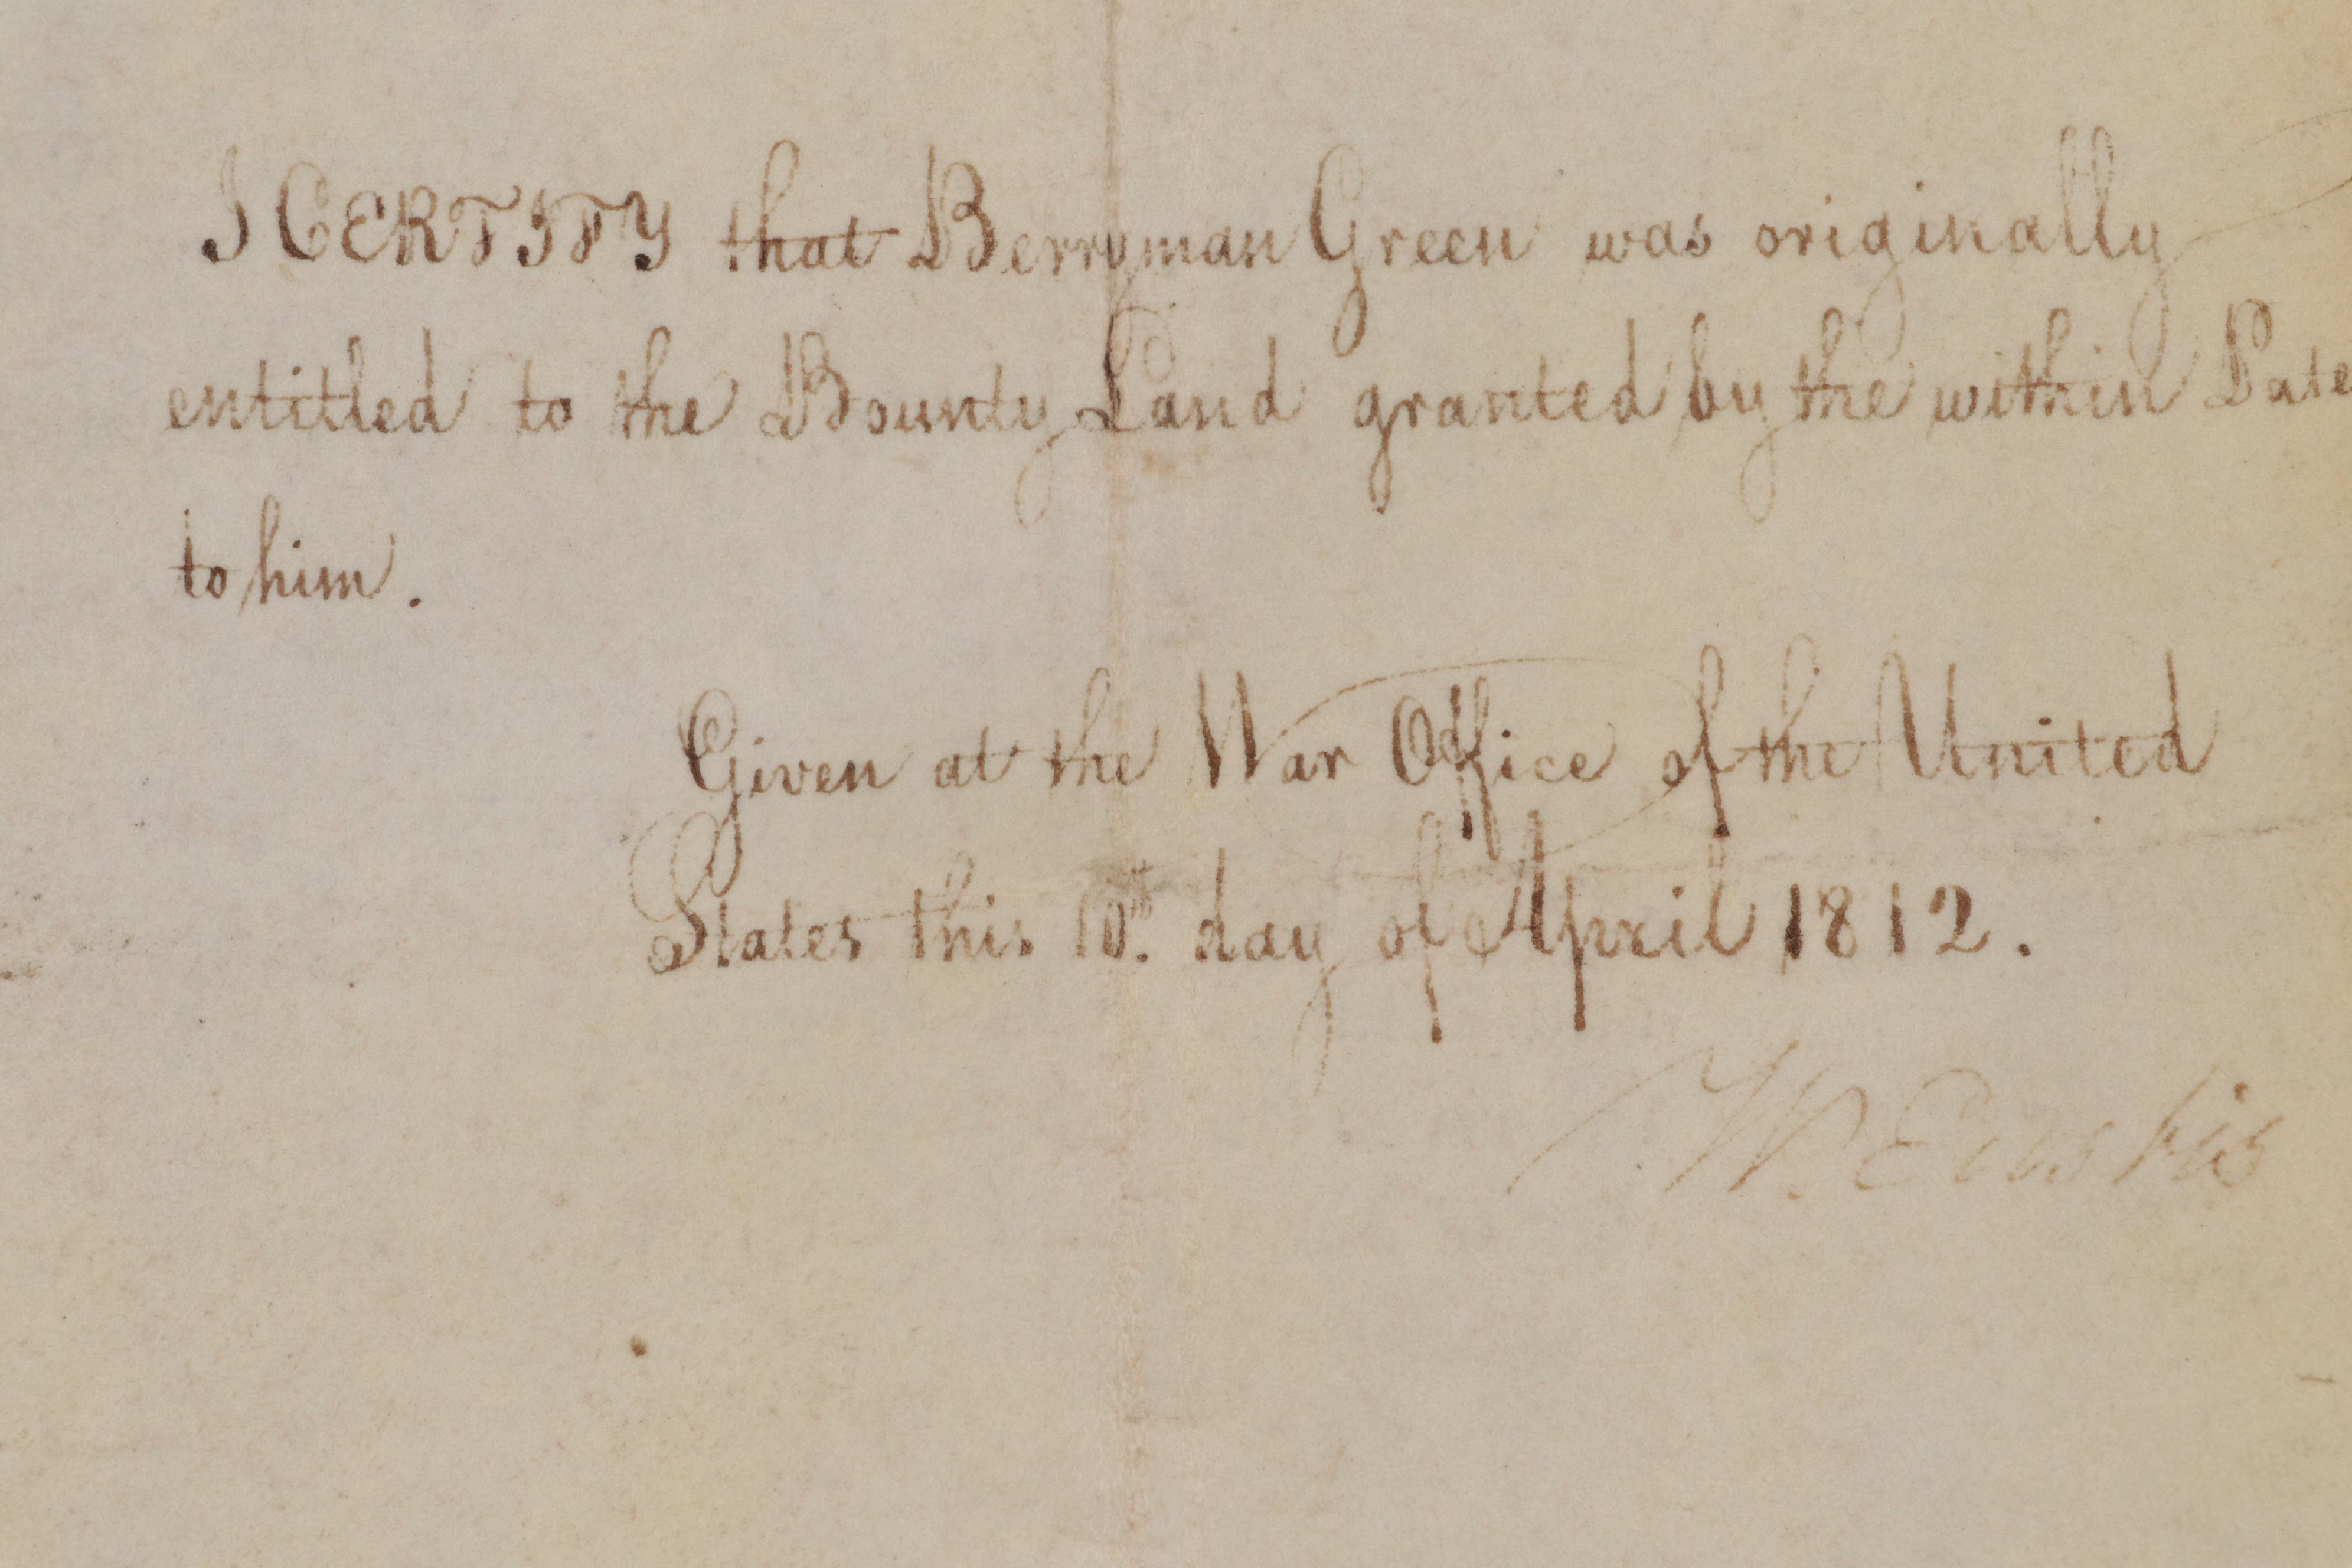 I CERTIFY that Berryman Green was originally
entitled to the Bounty Land granted by the within Pate
to him.
Given at the War Office of the United
States this 10th. day of April 1812.
W. Eustis